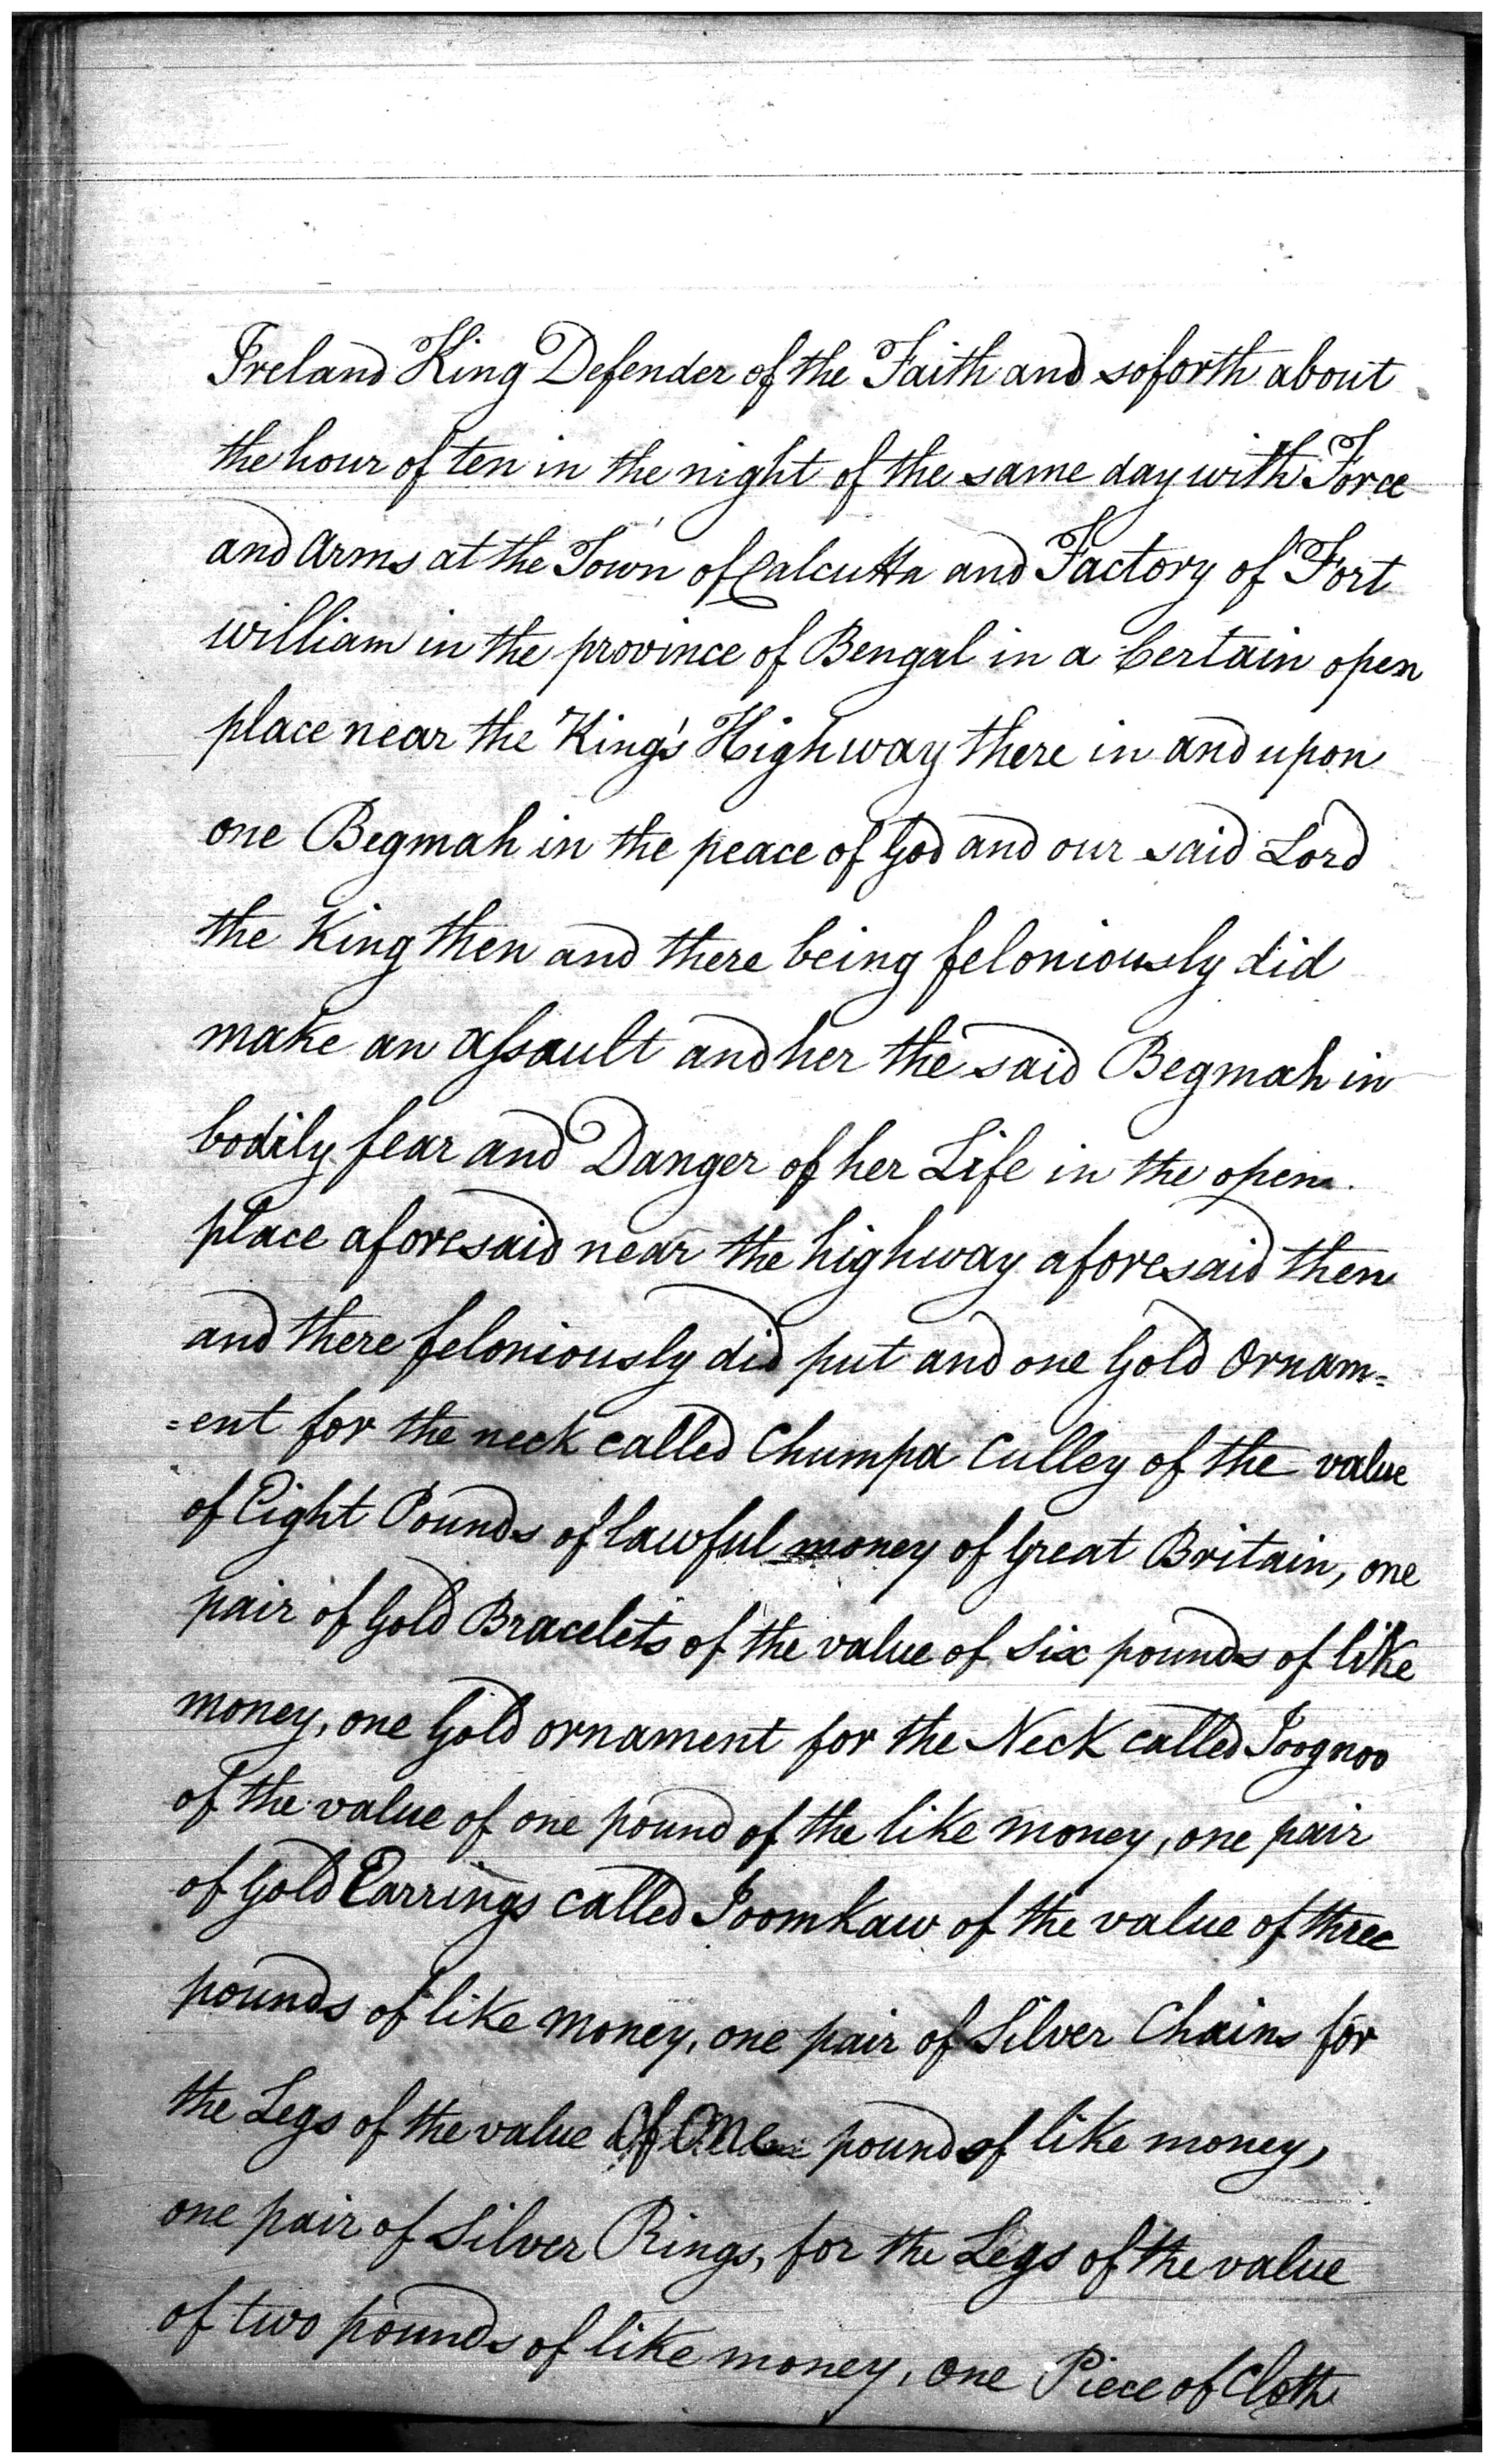 Ireland King Defender of the Faith and soforth about
the hour of ten in the night of the same day with Force
and Arms at the Town of Calcutta and Factory of Fort
William in the province of Bengal in a Certain open
place near the King's Highway there in and upon
one Begmah in the peace of God and our said Lord
the King then and there being feloniously did
make an assault and her the said Begmah in
bodily fear and Danger of her Life in the open
place aforesaid near the highway aforesaid then
and there feloniously did put and one Gold Ornam=
=ent for the neck called Chumpa Culley of the value
of Eight Pounds of lawful money of Great Britain, one
pair of Gold Bracelets of the value of six pounds of like
money, one Gold ornament for the Neck called Joognoo
of the value of one pound of the like money, one pair
of Gold Earrings called Joomkaw of the value of three
pounds of like money, one pair of Silver Chains for
the Legs of the value Of One pound of like money,
one pair of Silver Rings, for the Legs of the value
of two pounds of like money, one Piece of Cloth